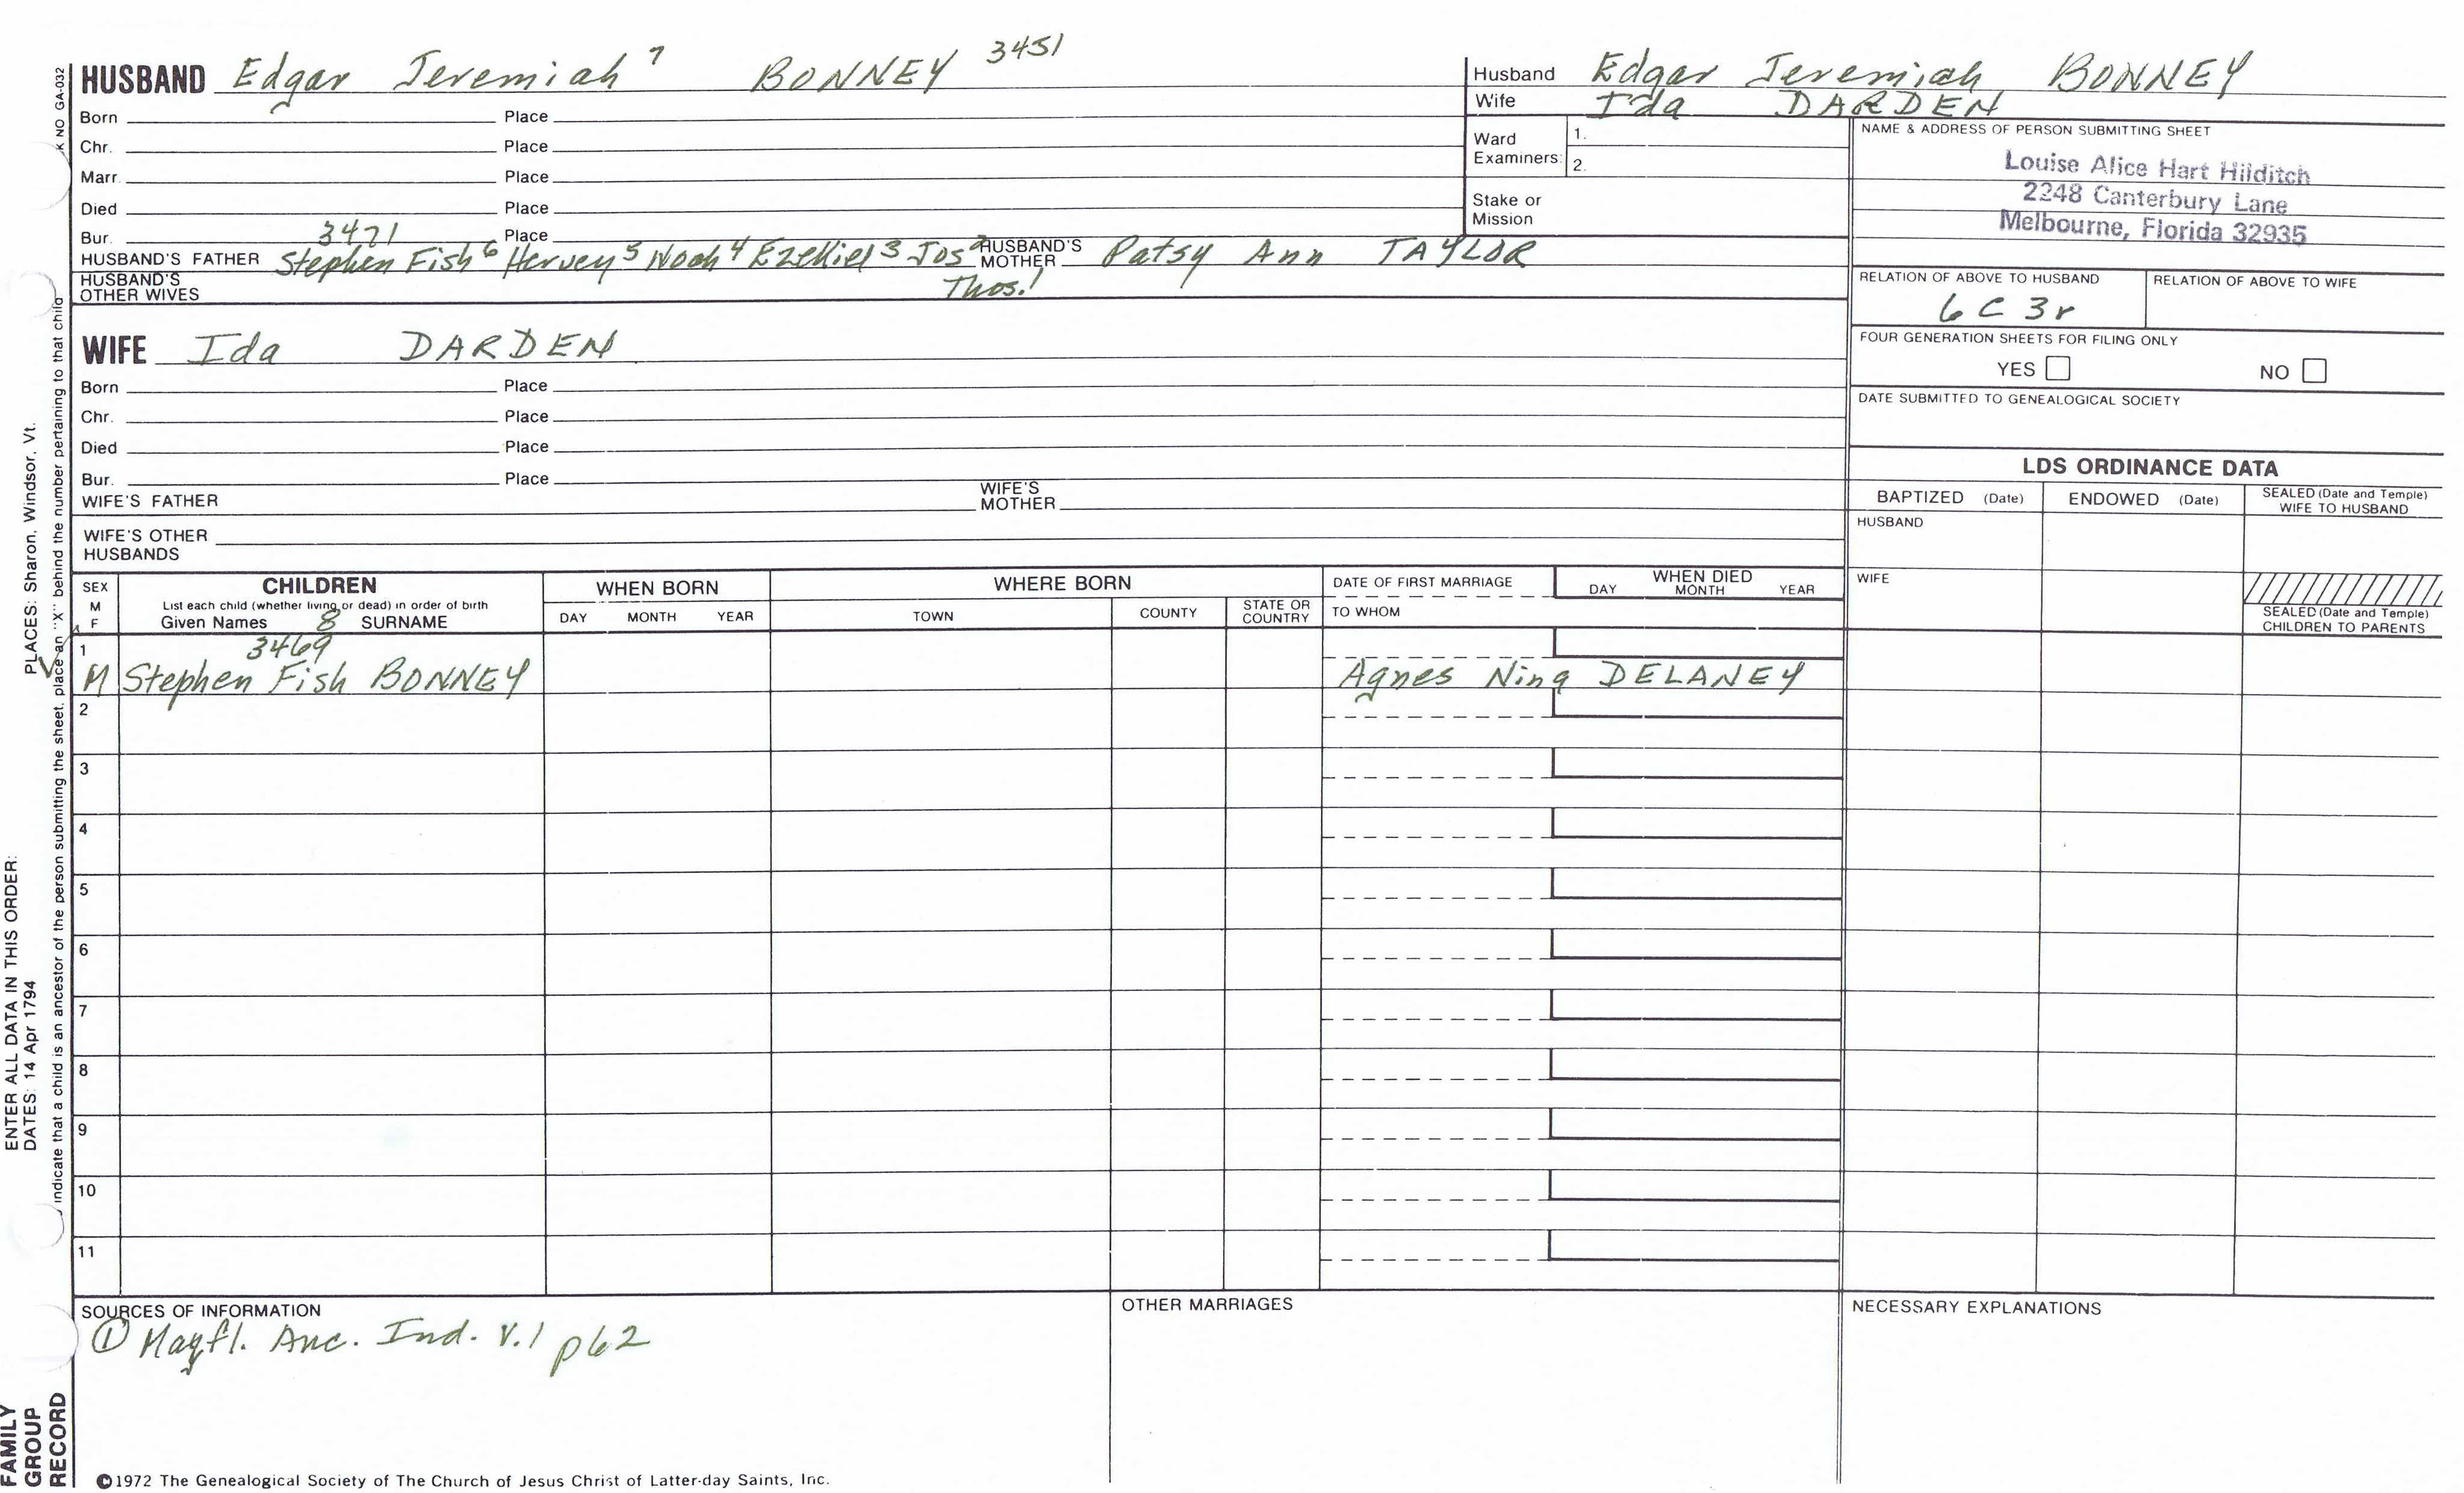 HUSBAND Edgar Jeremiah 7 BONNEY 3451
Born Place
Chr. Place
Marr. Place
Died Place
Bur. 3471 Place
HUSBAND'S FATHER Stephen Fish 6 Hervey 5 Noah 4 Ezekiel 3 Jos 2 HUSBAND'S MOTHER Patsy Ann TAYLOR
HUSBAND'S OTHER WIVES Thos. 1
WIFE Ida DARDEN
Born Place
Chr. Place
Died Place
Bur. Place
WIFE'S FATHER WIFE'S MOTHER
WIFE'S OTHER HUSBANDS
Husband Edgar Jeremiah BONNEY
Wife Ida DARDEN
Ward Examiners: 1.
2.
Stake or Mission
NAME & ADDRESS OF PERSON SUBMITTING SHEET
Louise Alice Hart Hilditch
2248 Canterbury Lane
Melbourne, Florida 32935
RELATION OF ABOVE TO HUSBAND RELATION OF ABOVE TO WIFE
6 C 3r
FOUR GENERATION SHEETS FOR FILING ONLY
YES NO
DATE SUBMITTED TO GENEALOGICAL SOCIETY
LDS ORDINANCE DATA
BAPTIZED (Date) ENDOWED (Date) SEALED (Date and Temple) WIFE TO HUSBAND
HUSBAND
WIFE
SEALED (Date and Temple) CHILDREN TO PARENTS
SEX M F
CHILDREN
List each child (whether living or dead) in order of birth
Given Names 8 SURNAME
WHEN BORN
DAY MONTH YEAR
WHERE BORN
TOWN COUNTY STATE OR COUNTRY
DATE OF FIRST MARRIAGE
TO WHOM
WHEN DIED
DAY MONTH YEAR
1 3469
M Stephen Fish BONNEY Agnes Nina DELANEY
2
3
4
5
6
7
8
9
10
11
SOURCES OF INFORMATION
① Mayfl. Anc. Ind. V.1 p62
OTHER MARRIAGES
NECESSARY EXPLANATIONS
©1972 The Genealogical Society of The Church of Jesus Christ of Latter-day Saints, Inc.
FAMILY GROUP RECORD
ENTER ALL DATA IN THIS ORDER:
DATES: 14 Apr 1794
PLACES: Sharon, Windsor, Vt.
indicate that a child is an ancestor of the person submitting the sheet, place an "X" behind the number pertaining to that child
K NO GA-032